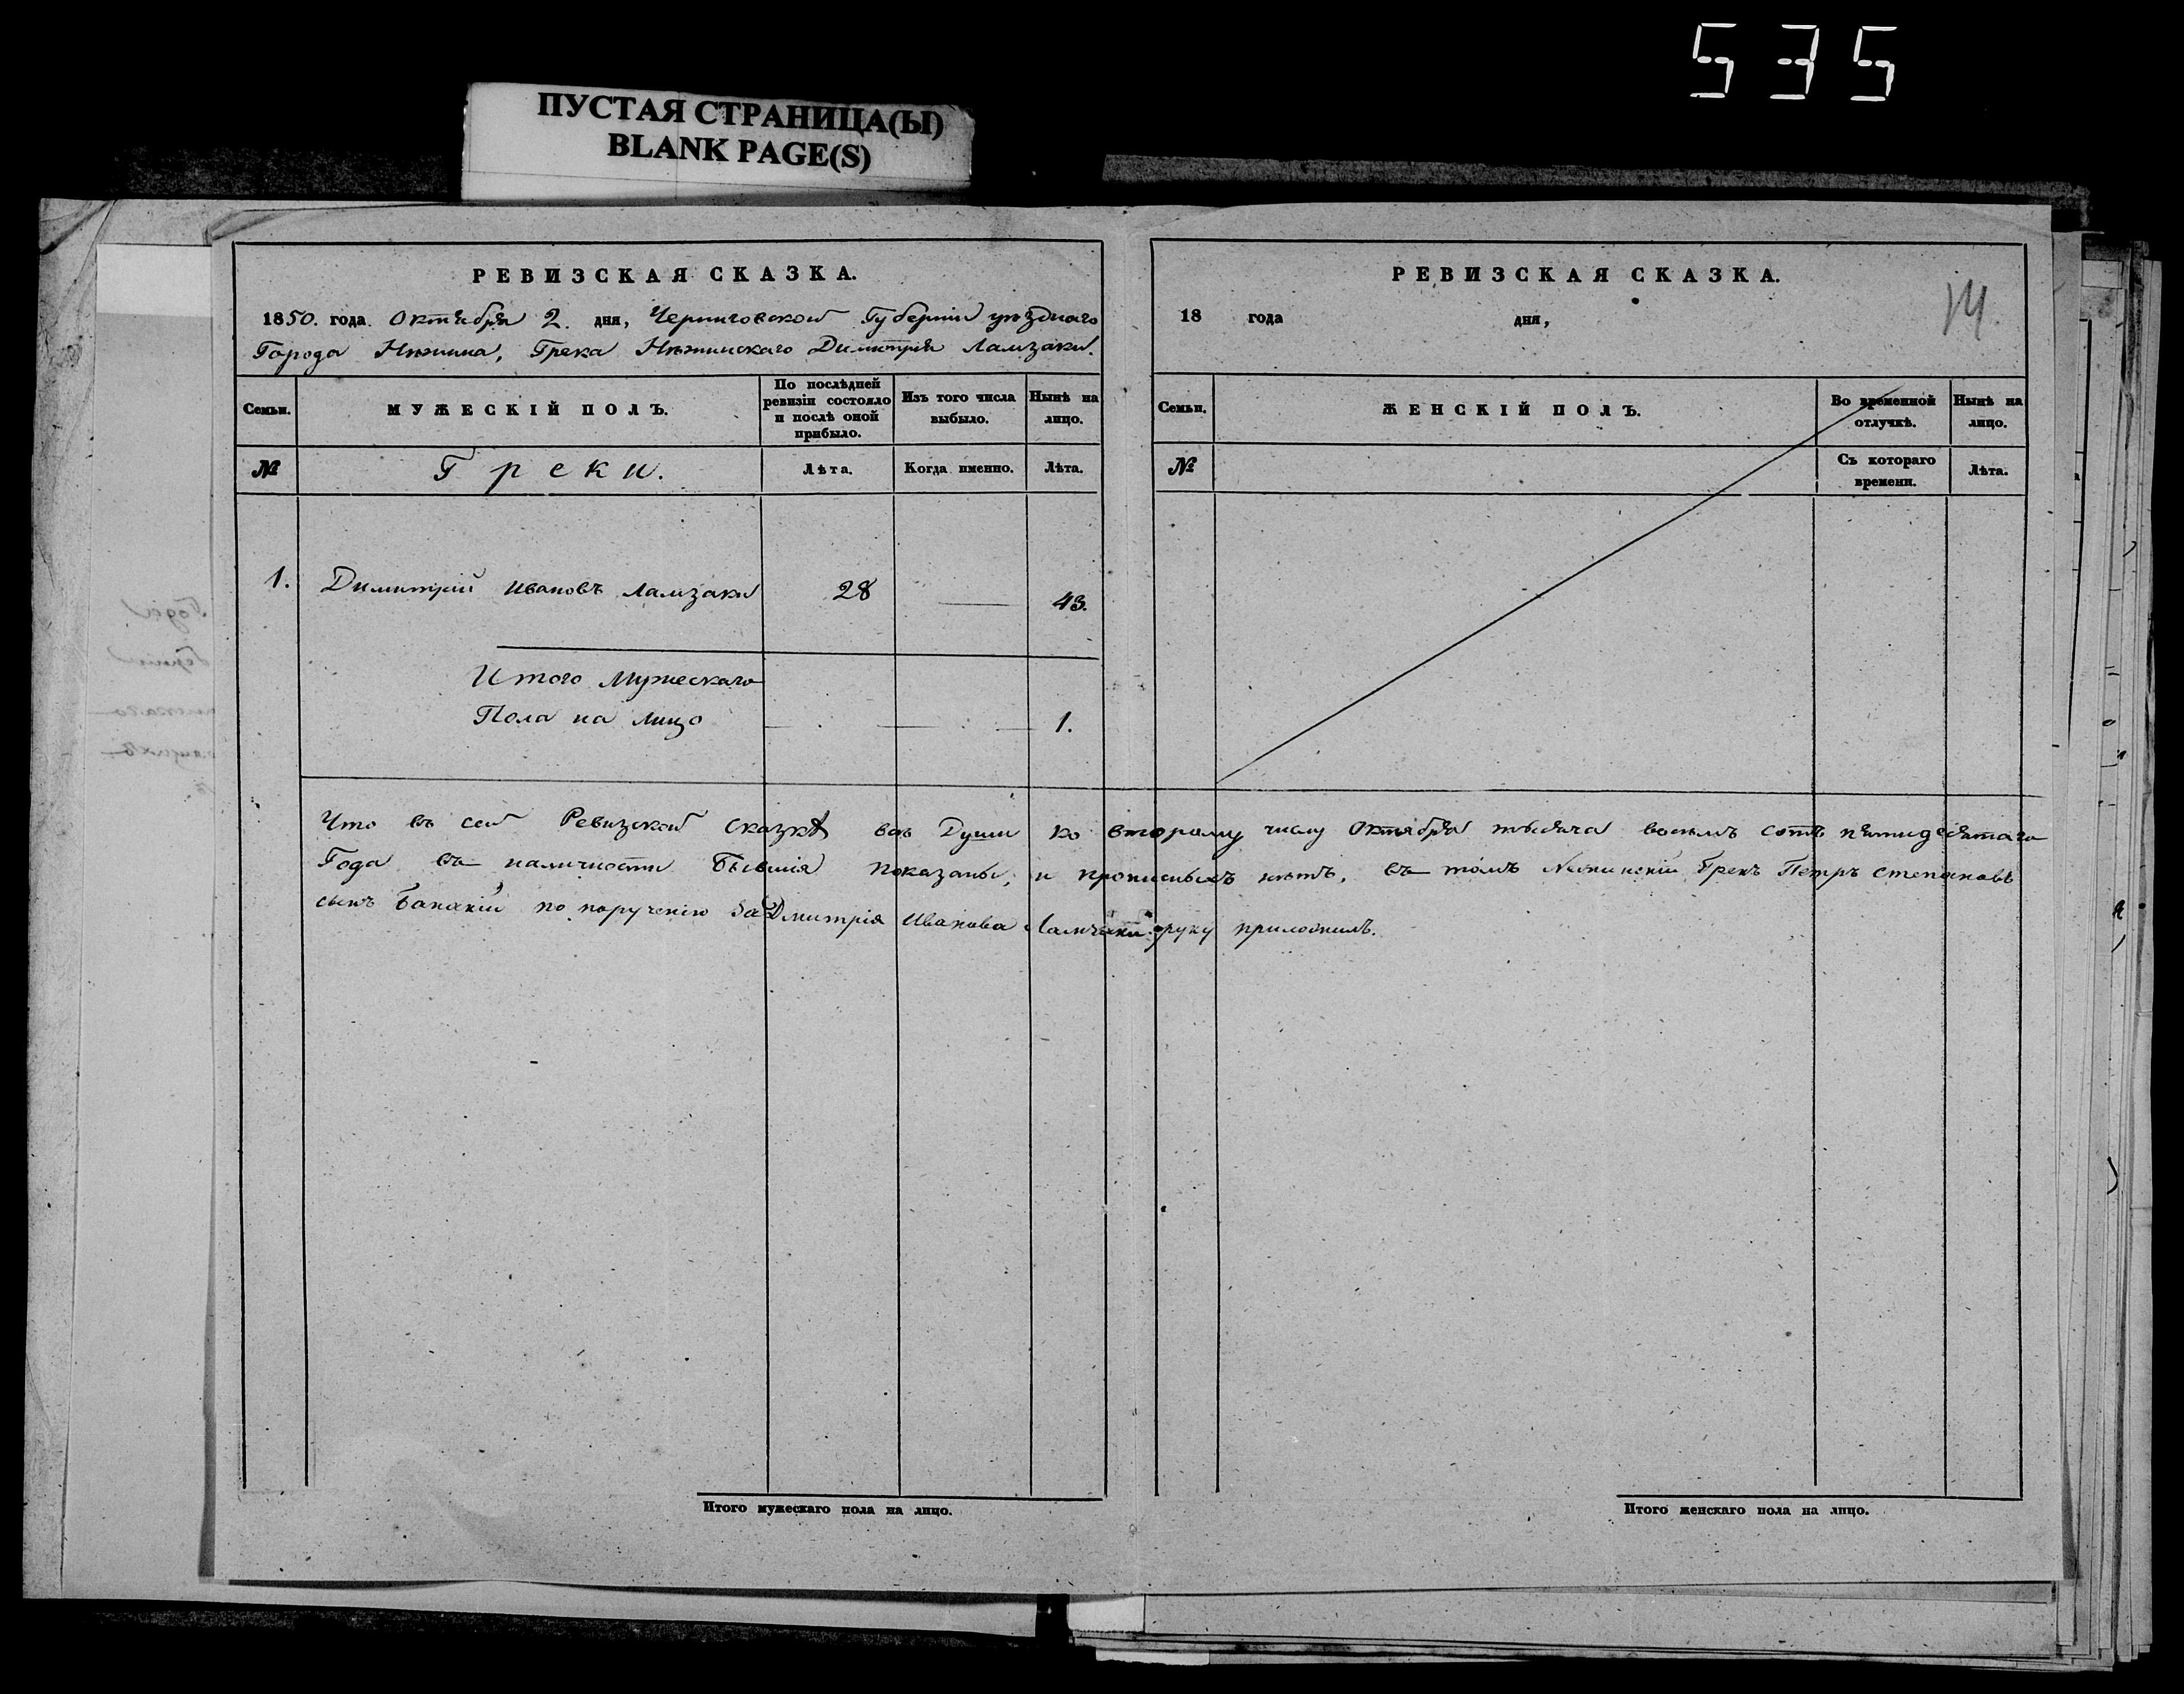 535
ПУСТАЯ СТРАНИЦА(Ы)
BLANK PAGE(S)
РЕВИЗСКАЯ СКАЗКА.
1850. года Октября 2. дня, Черниговской Губерніи уѣзднаго
Города Нѣжина, Грека Нѣжинскаго Димитрія Ламзаки.
Семьи.
МУЖЕСКІЙ ПОЛЪ.
По послѣдней ревизіи состояло и послѣ оной прибыло.
Изъ того числа выбыло.
Нынѣ на лицо.
№
Греки.
Лѣта.
Когда именно.
Лѣта.
1. Димитрій Ивановъ Ламзаки 28 — 43.
Итого Мужескаго
Пола на лицо 1.
РЕВИЗСКАЯ СКАЗКА.
14
18 года дня,
Семьи.
ЖЕНСКІЙ ПОЛЪ.
Во временной отлучкѣ.
Нынѣ на лицо.
№
Съ котораго времени.
Лѣта.
Что въ сей Ревизской сказкѣ всѣ Души ко второму числу Октября тысяча восемь сотъ пятидесятаго
Года въ наличности бывшія показаны, и прописныхъ нѣтъ, въ томъ Нежинскій Грекъ Петръ Степановъ
сынъ по порученію за Дмитрія Иванова руку приложилъ.
Итого мужескаго пола на лицо.
Итого женскаго пола на лицо.